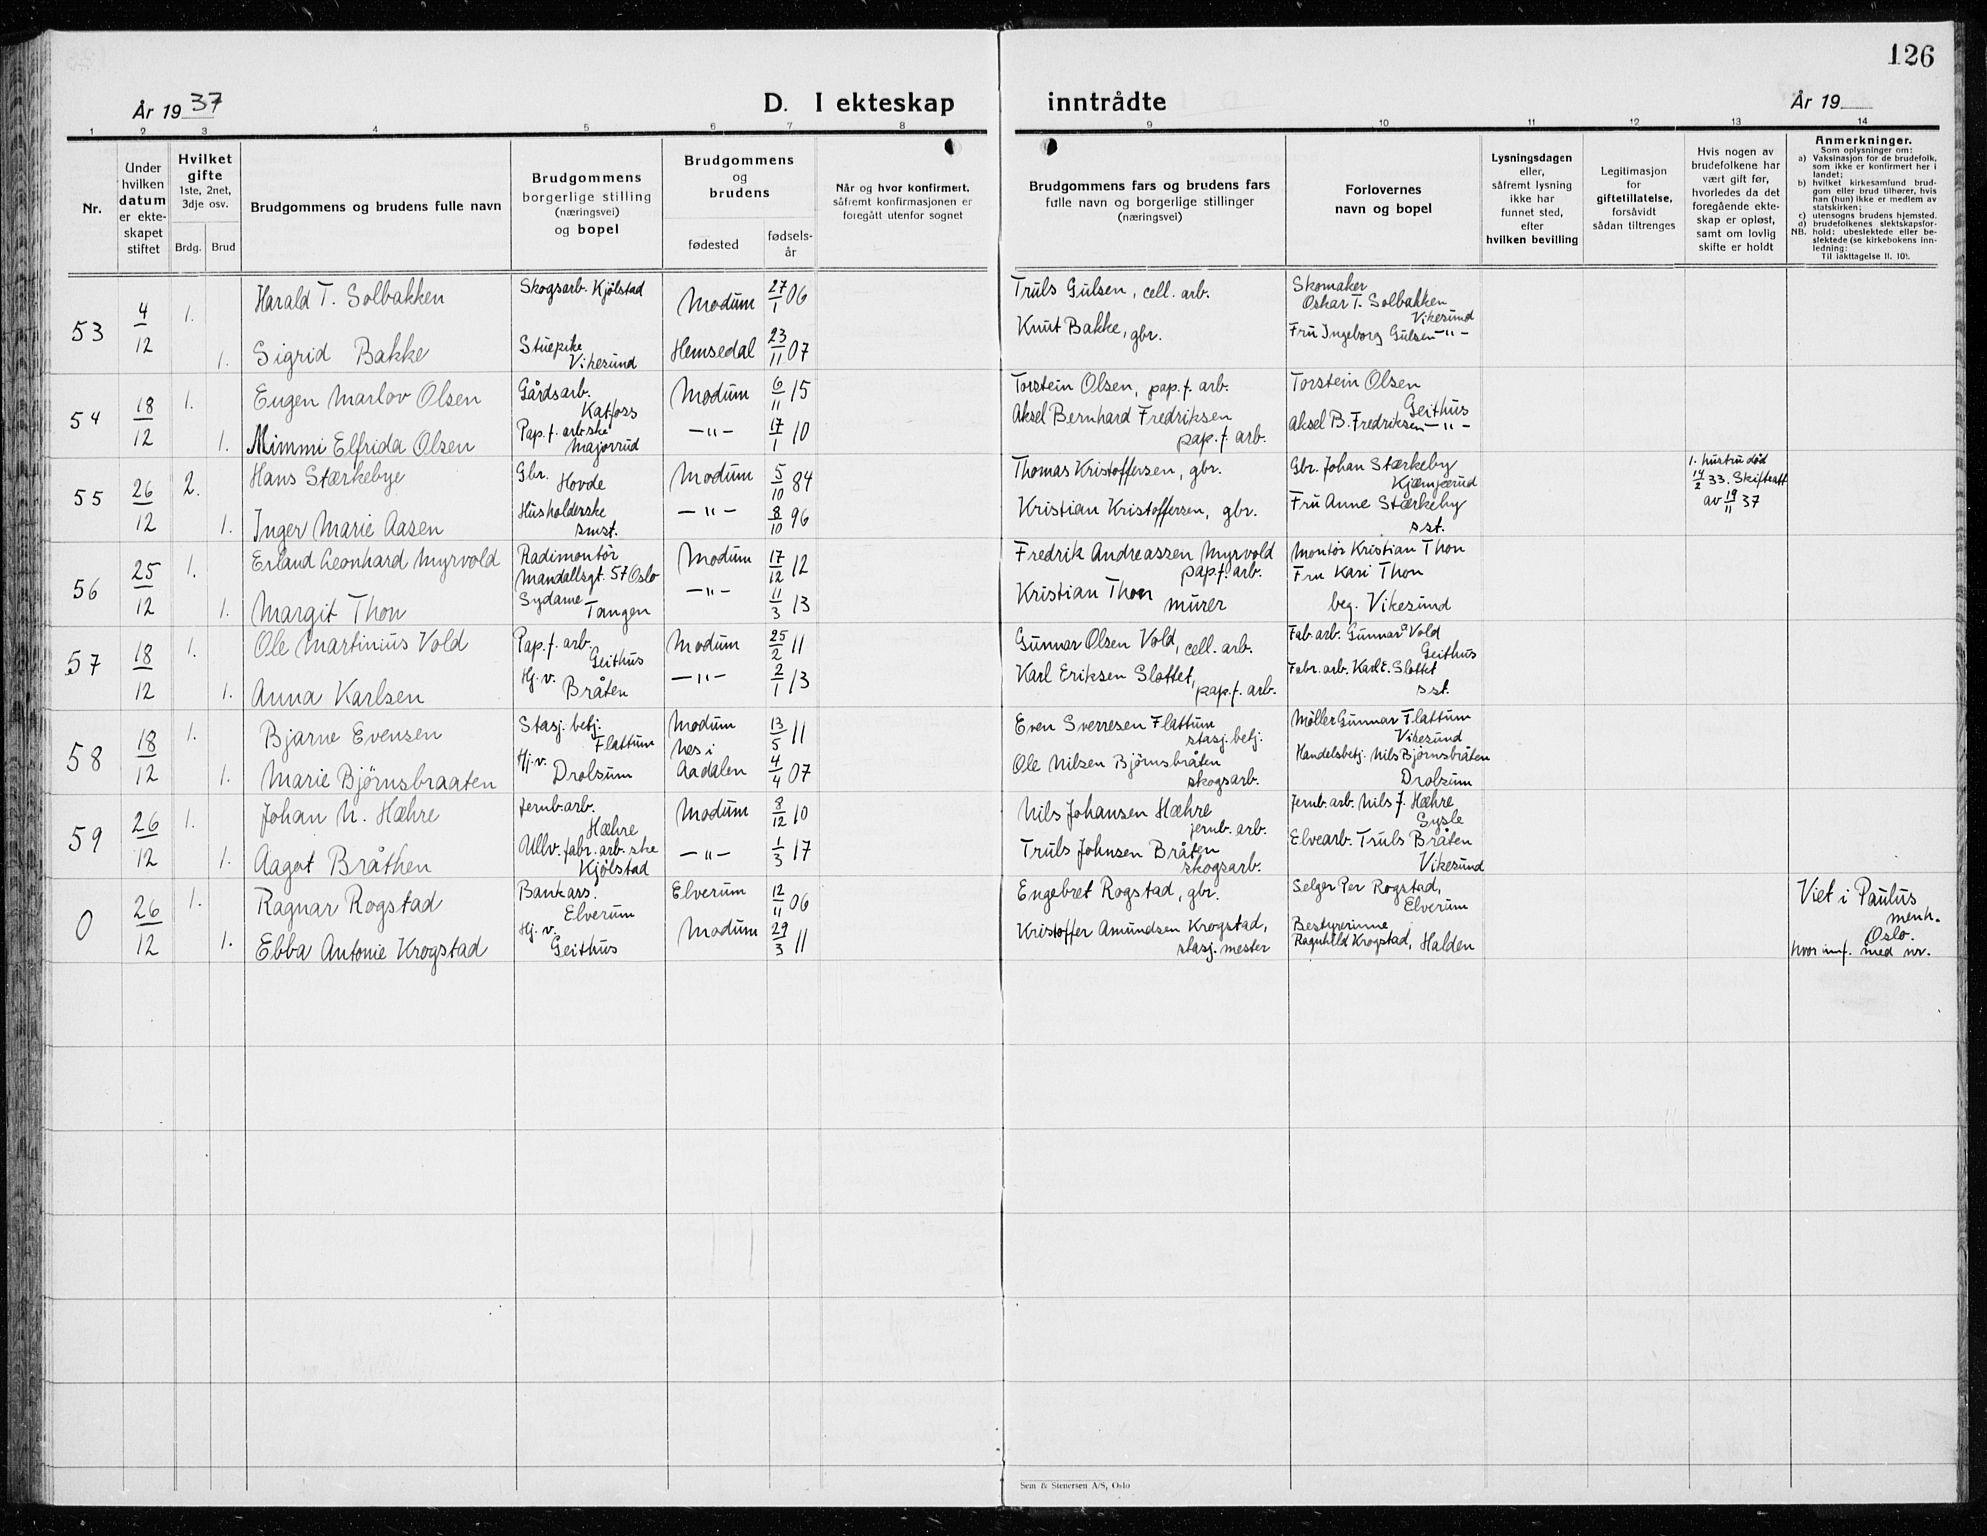 126
År 1937
D. I ekteskap inntrådte
År 19
1 2 3 4 5 6 7 8 9 10 11 12 13 14
Nr.
Under hvilken datum er ekteskapet stiftet
Hvilket gifte
1ste, 2net, 3dje osv.
Brdg. Brud
Brudgommens og brudens fulle navn
Brudgommens borgerlige stilling (næringsvei) og bopel
Brudgommens og brudens
fødested
fødsels-år
Når og hvor konfirmert, såfremt konfirmasjonen er foregått utenfor sognet
Brudgommens fars og brudens fars fulle navn og borgerlige stillinger (næringsvei)
Forlovernes navn og bopel
Lysningsdagen eller, såfremt lysning ikke har funnet sted, efter hvilken bevilling
Legitimasjon for giftetillatelse, forsåvidt sådan tiltrenges
Hvis nogen av brudefolkene har vært gift før, hvorledes da det foregående ekteskap er opløst, samt om lovlig skifte er holdt
Anmerkninger.
Som oplysninger om:
a) Vaksinasjon for de brudefolk, som ikke er konfirmert her i landet;
b) hvilket kirkesamfund brudgom eller brud tilhører, hvis han (hun) ikke er medlem av statskirken;
c) utensogns brudens hjemsted.
d) brudefolkenes slektskapsforhold: ubeslektede eller beslektede (se kirkebokens innledning:
NB.
Til iakttagelse II. 10).
53 4/12 1. Harald T. Solbakken Skogsarb. Kjølstad Modum 27/1 06 Truls Gulsen, cell. arb. Skomaker Oskar T. Solbakken Vikesund
1. Sigrid Bakke Stuepike Vikesund Hemsedal 23/11 07 Knut Bakke, gbr. Fru Ingeborg Gulsen —"—
54 18/12 1. Eugen Marlov Olsen Gårdsarb. Katfoss Modum 6/11 15 Torstein Olsen, pap. f. arb. Torstein Olsen Geithus
1. Mimmi Elfrida Olsen Pap. f. arb.ske Majorrud —"— 17/1 10 Aksel Bernhard Fredriksen pap. f. arb. Aksel B. Fredriksen —"—
55 26/12 2. Hans Stærkebye Gbr. Hovde Modum 5/10 84 Thomas Kristoffersen, gbr. Gbr. Johan Stærkeby Kjæmperud 1. hustru død 14/2 33. Skifteatt. av 19/11 37
1. Inger Marie Aasen Husholderske smst. —"— 8/10 96 Kristian Kristoffersen, gbr. Fru Anne Stærkeby sst.
56 25/12 1. Erland Leonhard Myrvold Radimontør Mandallsgt. 57 Oslo Modum 17/12 12 Fredrik Andreassen Myrvold pap. f. arb. Montør Kristian Thon
1. Margit Thon Sydame Tangen —"— 11/3 13 Kristian Thon murer Fru Kari Thon beg. Vikesund
57 18/12 1. Ole Martinius Vold Pap. f. arb. Geithus Modum 25/2 11 Gunnar Olsen Vold, cell. arb. Fab. arb. Gunnar Vold Geithus
1. Anna Karlsen Hj. v. Bråten —"— 2/1 13 Karl Eriksen Slottet, pap. f. arb. Fabr. arb. Karl E. Slottet sst.
58 18/12 1. Bjarne Evensen Stasj. betj. Flattum Modum 13/5 11 Even Sverresen Flattum stasj. betj. Møller Gunnar Flattum Vikesund
1. Marie Bjørnsbraaten Hj. v. Drolsum Nes i Aadalen 4/4 07 Ole Nilsen Bjørnsbråten skogsarb. Handelsbetj. Nils Bjørnsbråten Drolsum
59 26/12 1. Johan N. Hæhre Jernb. arb. Hæhre Modum 8/12 10 Nils Johansen Hæhre jernb. arb. Jernb. arb. Nils J. Hæhre Sysle
1. Aagot Bråthen Ullv. fabr. arb. ske Kjølstad —"— 1/3 17 Truls Johnsen Bråten skogsarb. Elvearb. Truls Bråten Vikesund
0 26/12 1. Ragnar Rogstad Bankass. Elverum Elverum 12/11 06 Engebret Rogstad, gbr. Selger Per Rogstad, Elverum Viet i Paulus menh. Oslo. hvor innf. med nr.
1. Ebba Antonie Krogstad Hj. v. Geithus Modum 29/3 11 Kristoffer Amundsen Krogstad, stasj. mester Bestyrerinne Ragnhild Krogstad, Halden
Sem & Stenersen A/S, Oslo